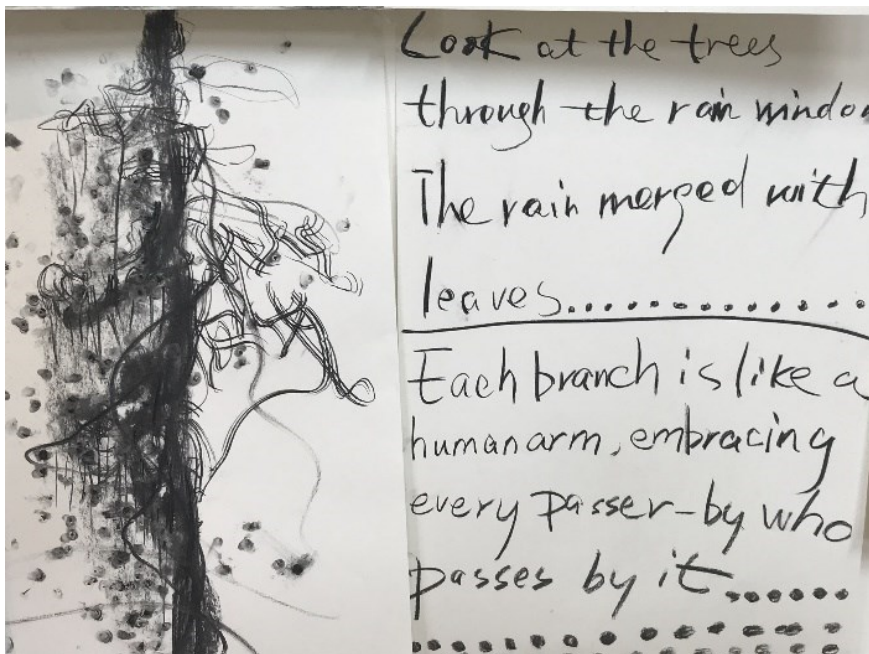 Look at the trees
through the rain windo
The rain merged with
leaves...............
Each branch is like a
human arm, embracing
every passer-by who
passes by it......
...............